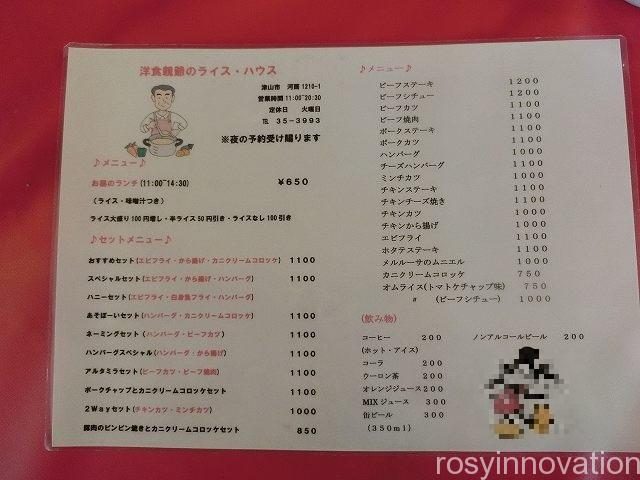 洋食親爺のライス・ハウス
津山市 河面1210-1
営業時間11:00~20:30
定休日 火曜日
℡ 35-3993
※夜の予約受け賜ります
♪メニュー♪
お昼のランチ(11:00~14:30) ￥650
(ライス・味噌汁つき)
ライス大盛り100円増し・半ライス50円引き・ライスなし100引き
♪セットメニュー♪
おすすめセット(エビフライ・から揚げ・カニクリームコロッケ) 1100
スペシャルセット(エビフライ・から揚げ・ハンバーグ) 1100
ハニーセット(エビフライ・白身魚フライ・ハンバーグ) 1100
あそぼーいセット(ハンバーグ・カニクリームコロッケ) 1100
ネーミングセット (ハンバーグ・ビーフカツ) 1100
ハンバーグスペシャル(ハンバーグ・から揚げ) 1100
アルタミラセット(ビーフカツ・ビーフ焼肉) 1100
ポークチャップとカニクリームコロッケセット 1100
2Wayセット(チキンカツ・ミンチカツ) 1000
豚肉のピンピン焼きとカニクリームコロッケセット 850
♪メニュー♪
ビーフステーキ 1200
ビーフシチュー 1200
ビーフカツ 1100
ビーフ焼肉 1100
ポークステーキ 1100
ポークカツ 1100
ハンバーグ 1000
チーズハンバーグ 1100
ミンチカツ 1000
チキンステーキ 1000
チキンチーズ焼き 1100
チキンカツ 1000
チキンから揚げ 1000
エビフライ 1100
ホタテステーキ 1100
メルルーサのムニエル 1000
カニクリームコロッケ 750
オムライス(トマトケチャップ味) 750
〃 (ビーフシチュー) 1000
(飲み物)
コーヒー 200 ノンアルコールビール 200
(ホット・アイス)
コーラ 200
ウーロン茶 200
オレンジジュース 200
MIXジュース 300
缶ビール 300
(350ml)
rosyinnovation